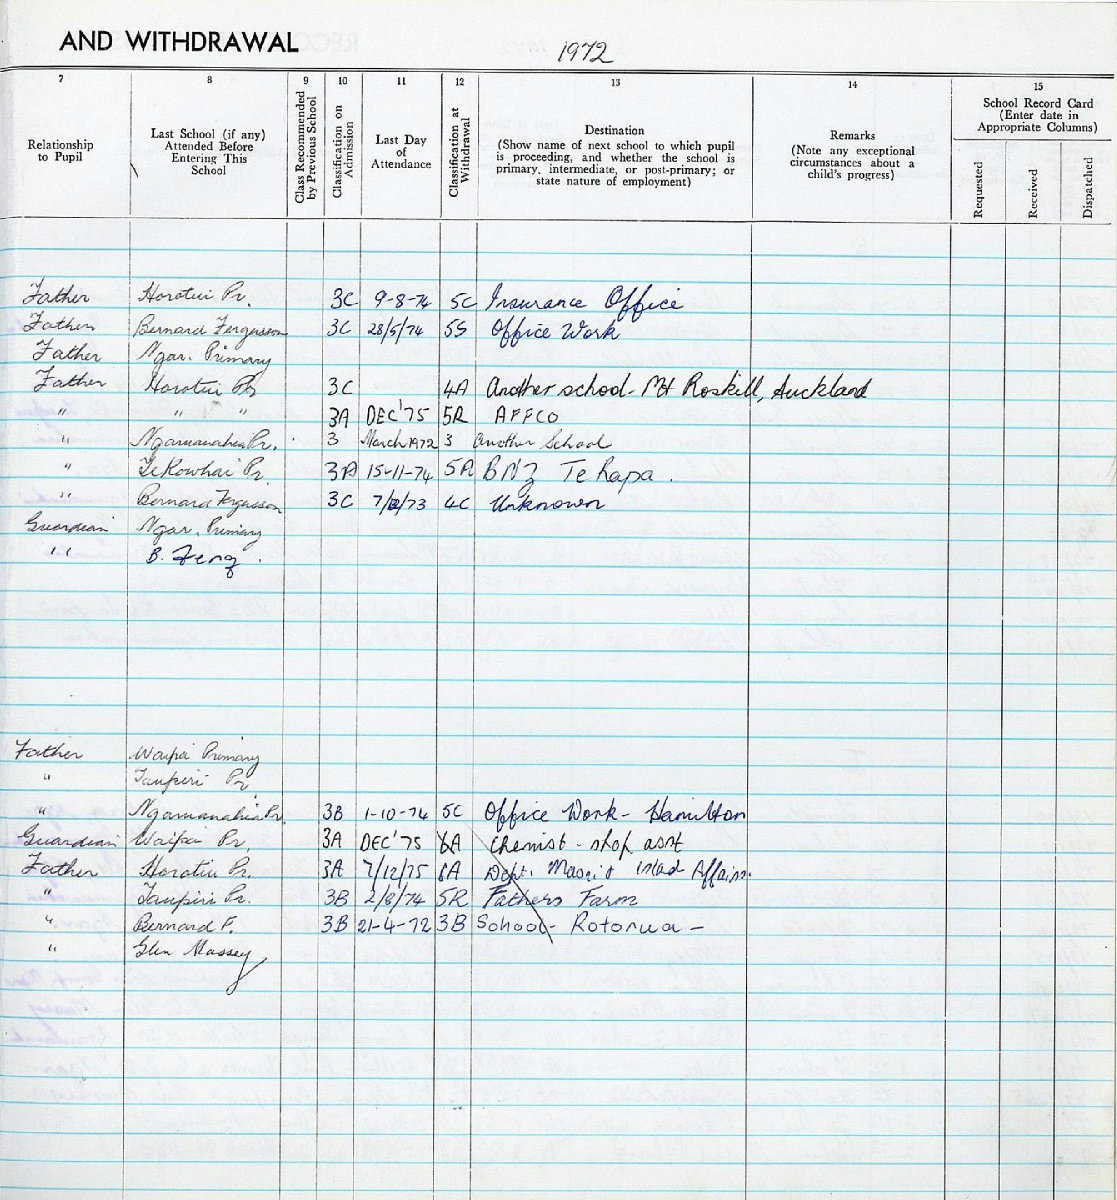 AND WITHDRAWAL
1972
7 8 9 10 11 12 13 14 15
Relationship to Pupil
Last School (if any) Attended Before Entering This School
Class Recommended by Previous School
Classification on Admission
Last Day of Attendance
Classification at Withdrawal
Destination
(Show name of next school to which pupil is proceeding, and whether the school is primary, intermediate, or post-primary; or state nature of employment)
Remarks
(Note any exceptional circumstances about a child's progress)
School Record Card
(Enter date in Appropriate Columns)
Requested
Received
Dispatched
Father Horotiu Pr. 3C 9-8-74 5C Insurance Office
Father Bernard Fergusson 3C 28/5/74 5S Office Work
Father Ngar. Primary
Father Horotiu Pr 3C 4A Another school - Mt Roskill, Auckland
" " " 3A DEC '75 5R AFFCO
" Ngaruawahia Pr. 3 March 1972 3 Another School
" Te Kowhai Pr. 3A 15-11-74 5A BNZ Te Rapa.
" Bernard Fergusson 3C 73 4C Unknown
Guardian Ngar. Primary
" B. Ferg.
Father Waipa Primary
" Taupiri Pr.
" Ngaruawahia Pr. 3B 1-10-74 5C Office Work - Hamilton
Guardian Waipa Pr. 3A DEC '75 6A Chemist - shop asst
Father Horotiu Pr. 3A 7/12/75 6A Dept. Maori & Island Affairs.
" Taupiri Pr. 3B 2/8/74 5R Fathers Farm
" Bernard F. 3B 21-4-72 3B School - Rotorua -
" Glen Massey